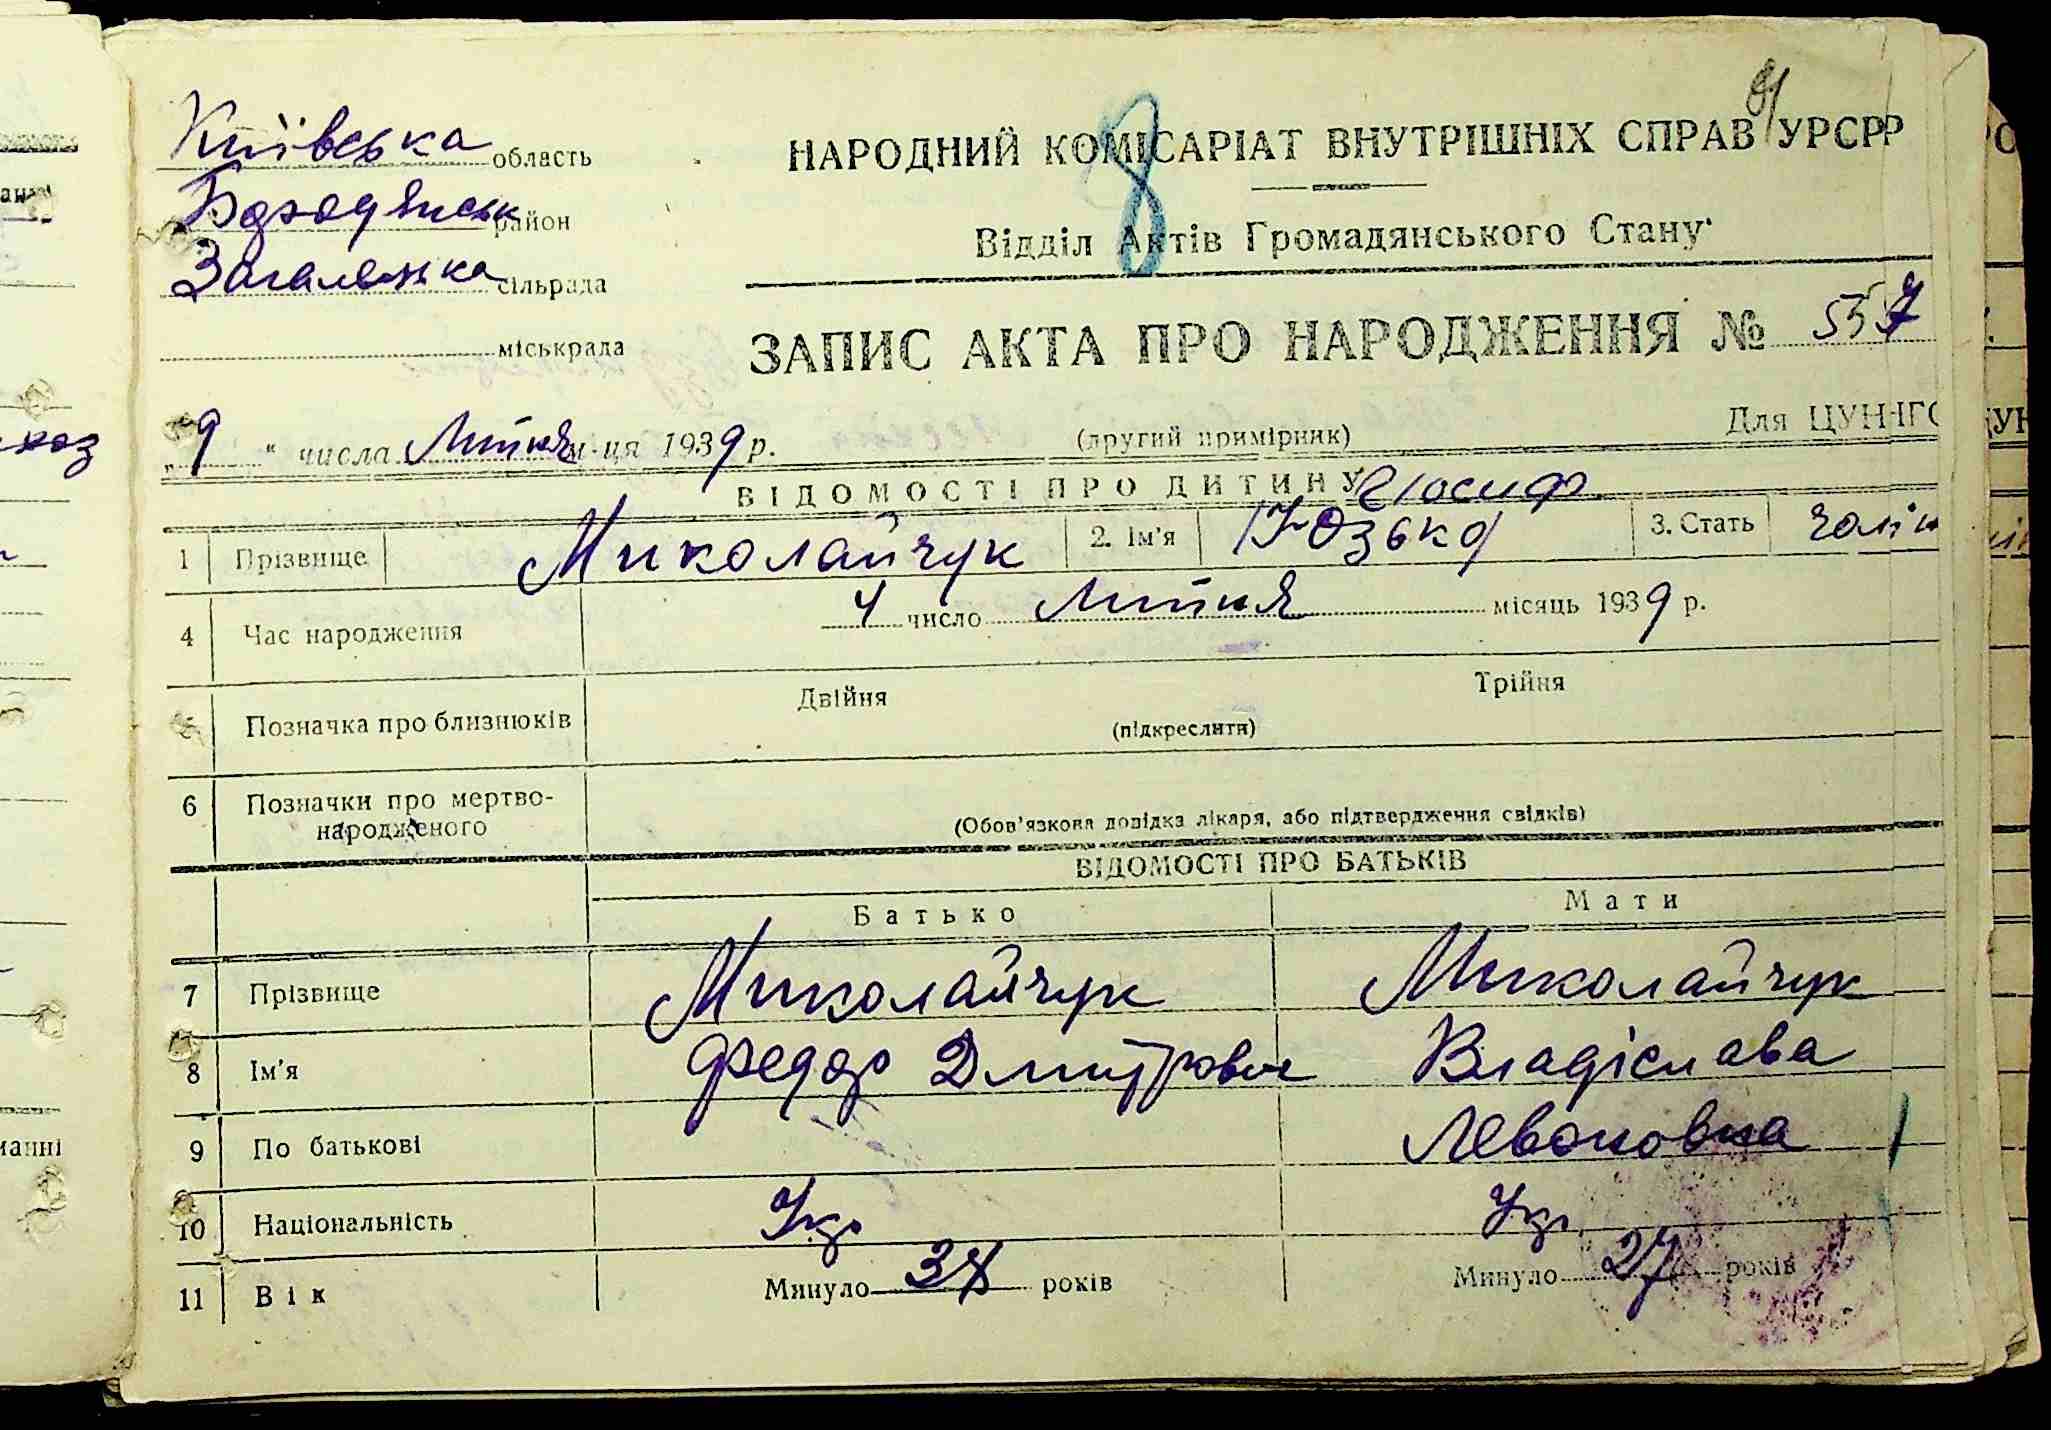 91
Київська область
НАРОДНИЙ КОМІСАРІАТ ВНУТРІШНІХ СПРАВ УРСР
8
Бородянськ район
Відділ Актів Громадянського Стану
Загальська сільрада
міськрада
ЗАПИС АКТА ПРО НАРОДЖЕННЯ № 557
„ 9 “ числа Липня м-ця 1939 р.
(другий примірник)
Для ЦУНГО
ВІДОМОСТІ ПРО ДИТИНУ
Йосиф
1 Прізвище Миколайчук 2. Ім'я Юзько 3. Стать
4 Час народження 4 число Липня місяць 1939 р.
5 Позначка про близнюків Двійня Трійня
(підкреслити)
6 Позначки про мертво-
народженого
(Обов'язкова довідка лікаря, або підтвердження свідків)
ВІДОМОСТІ ПРО БАТЬКІВ
Батько Мати
7 Прізвище Миколайчук Миколайчук
8 Ім'я Федор Дмитрович Владіслава
9 По батькові Левоновна
10 Національність Укр Укр
11 Вік Минуло років Минуло 27 років